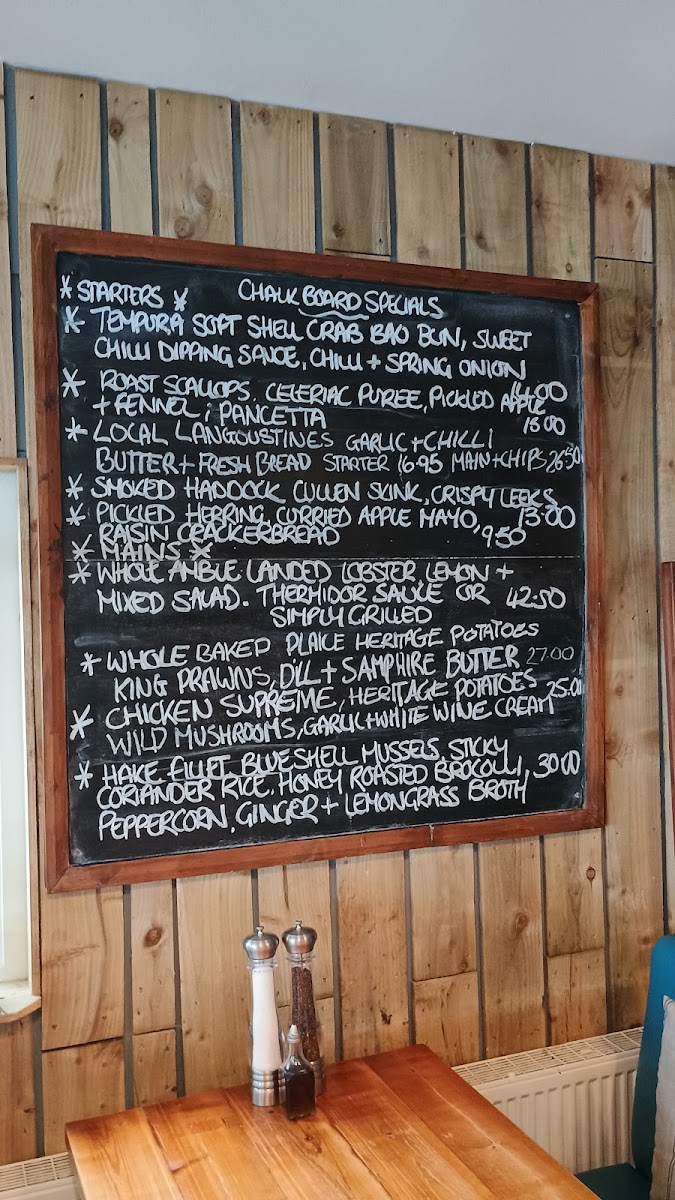 * STARTERS * CHALK BOARD SPECIALS
* TEMPURA SOFT SHELL CRAB BAO BUN, SWEET
CHILLI DIPPING SAUCE, CHILLI + SPRING ONION
14.00
* ROAST SCALLOPS. CELERIAC PUREE, PICKLED APPLE
+ FENNEL; PANCETTA 15.00
* LOCAL LANGOUSTINES GARLIC + CHILLI
BUTTER + FRESH BREAD STARTER 16.95 MAIN + CHIPS 26.50
* SMOKED HADDOCK CULLEN SKINK, CRISPY LEEKS
13.00
* PICKLED HERRING, CURRIED APPLE MAYO,
RAISIN CRACKERBREAD 9.50
* MAINS *
* WHOLE AMBLE LANDED LOBSTER, LEMON +
MIXED SALAD. THERMIDOR SAUCE OR 42.50
SIMPLY GRILLED
* WHOLE BAKED PLAICE HERITAGE POTATOES
KING PRAWNS, DILL + SAMPHIRE BUTTER 27.00
* CHICKEN SUPREME, HERITAGE POTATOES 25.00
WILD MUSHROOMS, GARLIC + WHITE WINE CREAM
* HAKE FILLET BLUESHELL MUSSELS, STICKY
CORIANDER RICE. HONEY ROASTED BROCOLLI, 30.00
PEPPERCORN, GINGER + LEMONGRASS BROTH